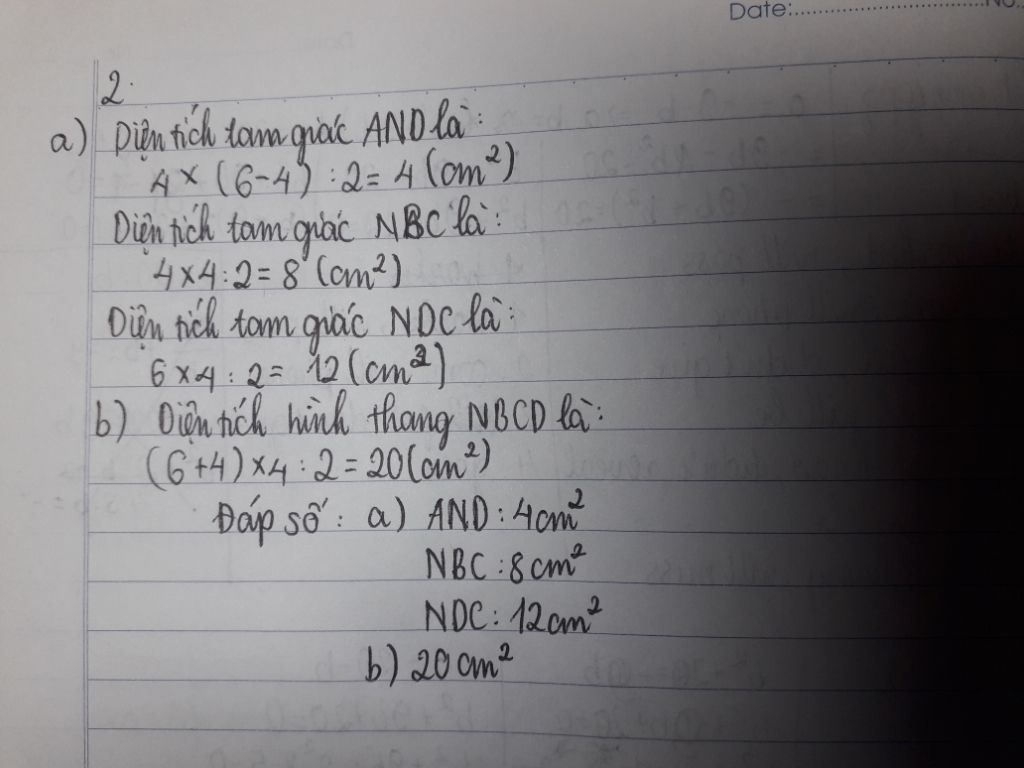 Date:........................No.
2.
a) Diện tích tam giác AND là:
4 × (6-4) : 2 = 4 (cm²)
Diện tích tam giác NBC là:
4 × 4 : 2 = 8 (cm²)
Diện tích tam giác NDC là:
6 × 4 : 2 = 12 (cm²)
b) Diện tích hình thang NBCD là:
(6+4) × 4 : 2 = 20 (cm²)
Đáp số: a) AND: 4cm²
NBC: 8cm²
NDC: 12cm²
b) 20cm²